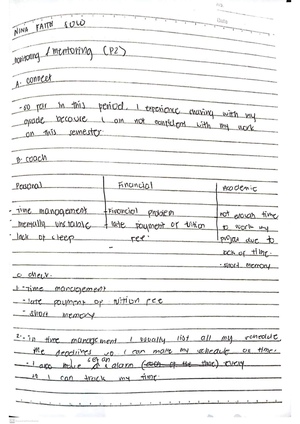 NINA FAITH SULO
Monitoring / mentoring (P2)
A. connect
- So far in this period, I experience with my
grade because I am not confident with my work
on this semester
B. coach
Personal Financial Academic
- Time management - Financial problem not enough time
- mentally unstable - late payment of tuition to work my
- lack of sleep fee. project due to
- lack of time.
- short memory
C. check.
1. - time management
- late payment of tuition fee
- short memory
2. - in time management I usually list all my schedule
the deadlines so I can make my schedule on time.
set an
- I also make a alarm every
so I can track my time.